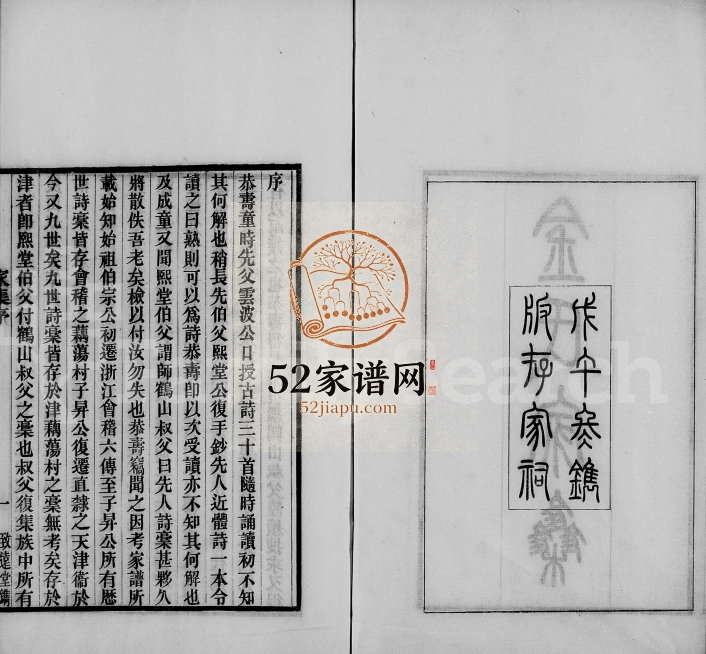 戊午冬鐫
版存家祠
序
恭壽童時先父雲波公口授古詩三十首隨時誦讀初不知
其何解也稍長先伯父熙堂公復手鈔先人近體詩一本令
讀之曰熟則可以為詩恭壽卽以次受讀亦不知其何解也
及成童又聞熙堂伯父謂師鶴山叔父曰先人詩稾甚夥久
將散佚吾老矣檢以付汝勿失也恭壽竊聞之因考家譜所
載始知始祖伯宗公初遷浙江會稽六傳至子昇公所有歷
世詩稾皆存會稽之藕蕩村子昇公復遷直隸之天津衞於
今又九世矣九世詩稾皆存於津藕蕩村之稾無考矣存於
津者卽熙堂伯父付鶴山叔父之稾也叔父復集族中所有
家集序
一
致遠堂鐫
52家谱网
52jiapu.com